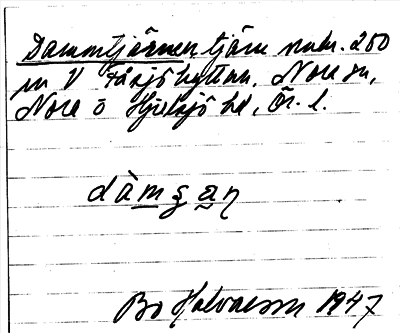 Dammtjärnen tjärn nuhr. 200
m V Fårsjöhyttan, Nora sn,
Nora o Hjulsjö hd, Ör. l.
dàmʂan
Bo Kalvaeson 1947